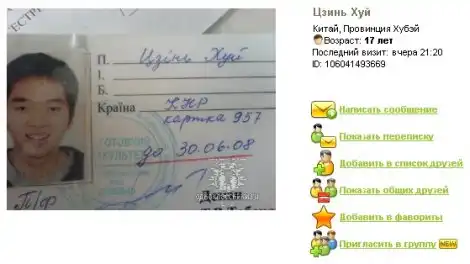 П. Цзінь Хуй
І.
Б.
Країна КНР
картка 957
до 30.06.08
Цзинь Хуй
Китай, Провинция Хубэй
Возраст: 17 лет
Последний визит: вчера 21:20
ID: 106041493669
Написать сообщение
Показать переписку
Добавить в список друзей
Показать общих друзей
Добавить в фавориты
Пригласить в группу NEW